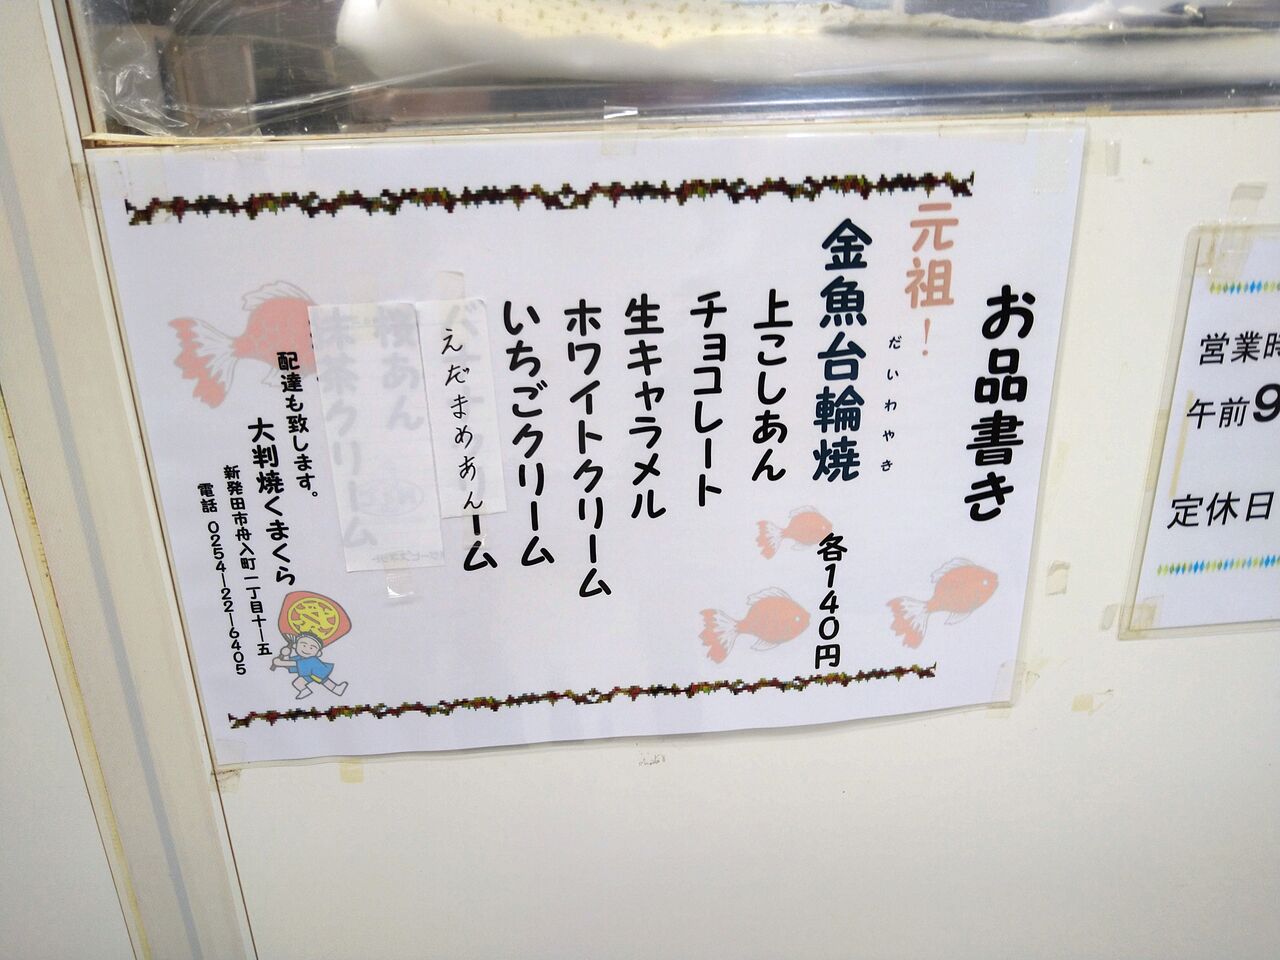 お品書き
元祖!
金魚台輪焼
だいわやき
各140円
上こしあん
チョコレート
生キャラメル
ホワイトクリーム
いちごクリーム
えだまめあん
ーム
桜あん
抹茶クリーム
配達も致します。
大判焼くまくら
新発田市舟入町一丁目十一五
電話 0254-22-6405
営業時
午前9
定休日